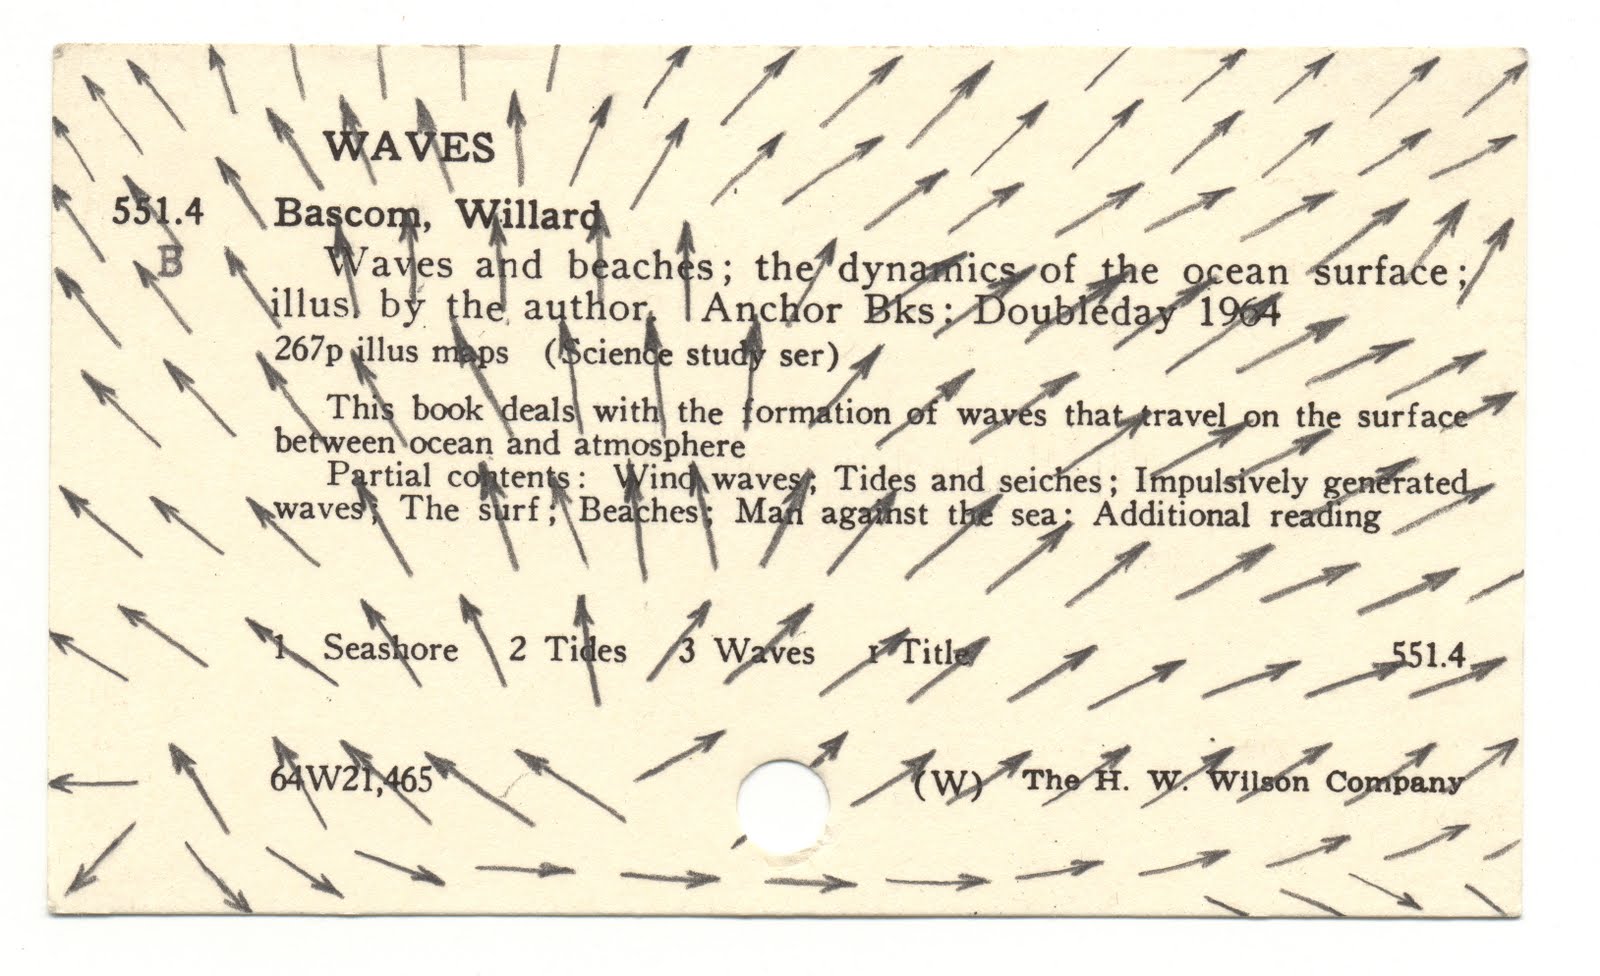 WAVES
551.4 Bascom, Willard
B Waves and beaches; the dynamics of the ocean surface;
illus. by the author. Anchor Bks: Doubleday 1964
267p illus maps (Science study ser)
This book deals with the formation of waves that travel on the surface
between ocean and atmosphere
Partial contents: Wind waves; Tides and seiches; Impulsively generated
waves; The surf; Beaches; Man against the sea; Additional reading
1 Seashore 2 Tides 3 Waves I Title 551.4
64W21,465 (W) The H. W. Wilson Company